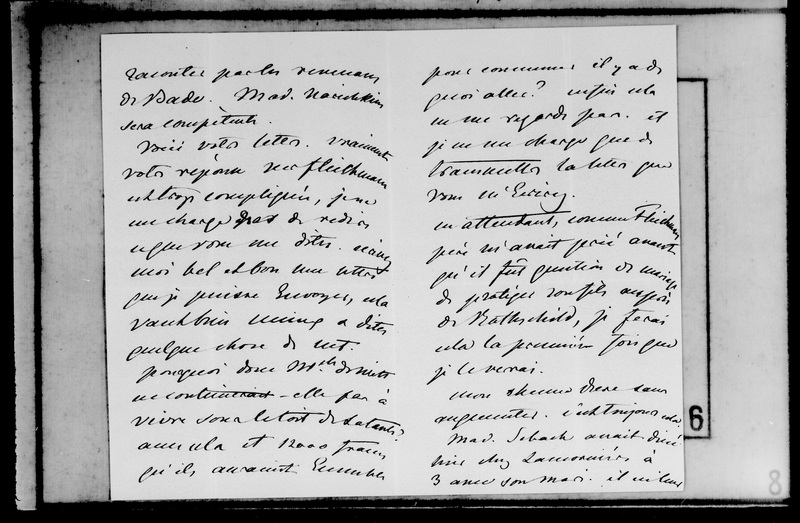 raconter par les revenans
de Bade. Mad. Narishkin
sera compétente.
Voici votre lettre. vraiment
votre réponse sur fleishmann
est trop compliquée, je ne
me charge pas de redire
ce que vous me dites.
moi bel et bon une lettre
que je puisse Envoyer, cela
vaut bien mieux a dites
quelque chose de net.
pourquoi donc Mlle de
ne continuerait-elle pas à
vivre sous le toit de sa tante?
avec cela et 12000 francs
qu'ils auraient Ensemble
pour commencer il y a de
quoi aller? enfin cela
ne me regarde pas. et
je ne me charge que de
transmettre la lettre que
vous m'Ecrirez.
en attendant, comme Fleishmann
père m'avait prié avant
qu'il fût question de mariage
de protéger son fils auprès
de Rothschild, je ferai
cela la première fois que
je le verrai.
mon rhume dure sans
augmenter. c'est toujours cela.
Mad. Sebach avait diné
hier chez Lamoricière à
3 avec son mari. il
6
8